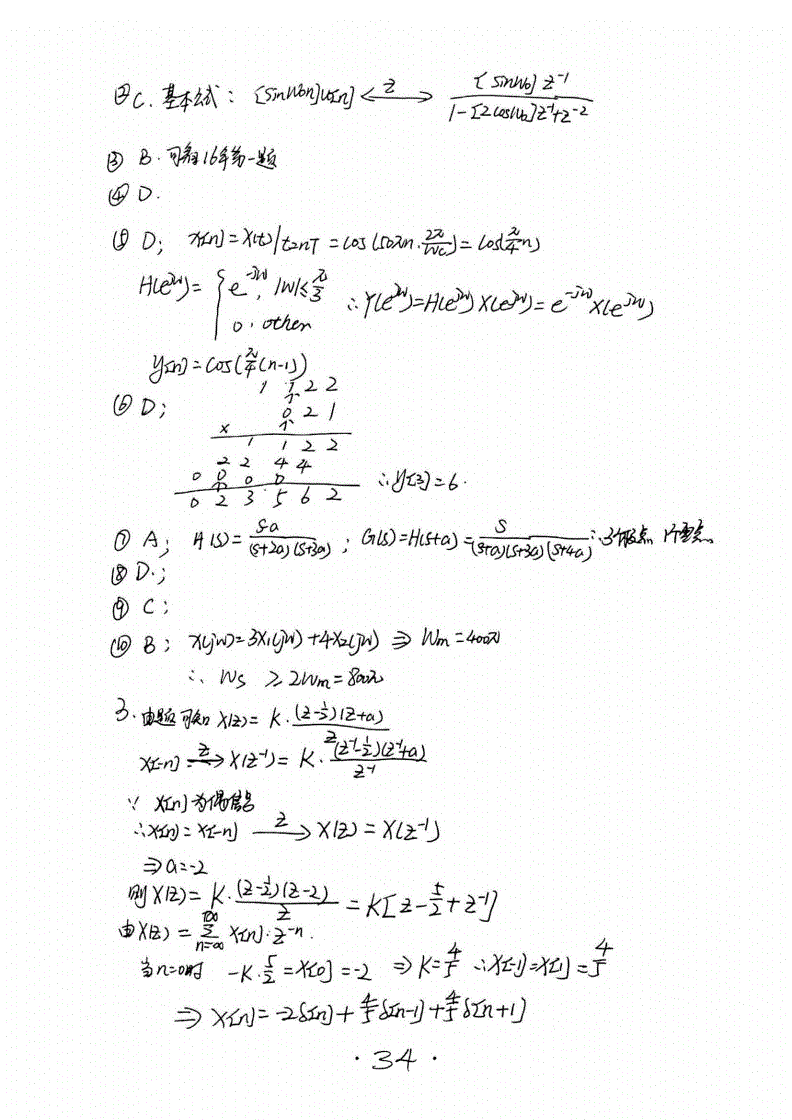 ② C. 基本公式: [sinω₀n]u[n] <—z—> [sinω₀]z⁻¹ / (1-[2cosω₀]z⁻¹+z⁻²)
③ B. 可看16年第一题
④ D.
⑤ D; x[n]=x(t)|t=nT = cos(50πn·2π/ωc)=cos(π/4 n)
H(e^jω)= { e^-jω, |ω|≤π/3 ∴Y(e^jω)=H(e^jω)X(e^jω)=e^-jωX(e^jω)
0, other
y[n]=cos(π/4(n-1))
1 1 2 2
↑
⑥ D; 0 2 1
× ↑
1 1 2 2
2 2 4 4
0 0 0 0
0 2 3 5 6 2 ∴y[3]=6.
⑦ A; H(s)= s-a / (s+2a)(s+3a) ; G(s)=H(s+a)= s / (s+a)(s+3a)(s+4a) ∴3个极点 1个零点
⑧ D.;
⑨ C;
⑩ B; X(jω)=3X₁(jω)+4X₂(jω) ⇒ ωm=400π
∴ ωs ≥ 2ωm=800π
3. 由题可知 X(z)= K·(z-1/2)(z+a) / z
x[-n] —z—> X(z⁻¹)= K·(z⁻¹-1/2)(z⁻¹+a) / z⁻¹
∵ x[n]为偶信号
∴x[n]=x[-n] —z—> X(z)=X(z⁻¹)
⇒a=-2
则X(z)= K·(z-1/2)(z-2) / z = K[z-5/2+z⁻¹]
由X(z)= Σ(n=-∞, +∞) x[n]·z⁻ⁿ.
当n=0时 -K·5/2=x[0]=-2 ⇒K=4/5 ∴x[-1]=x[1]=4/5
⇒ x[n]=-2δ[n]+4/5δ[n-1]+4/5δ[n+1]
·34·